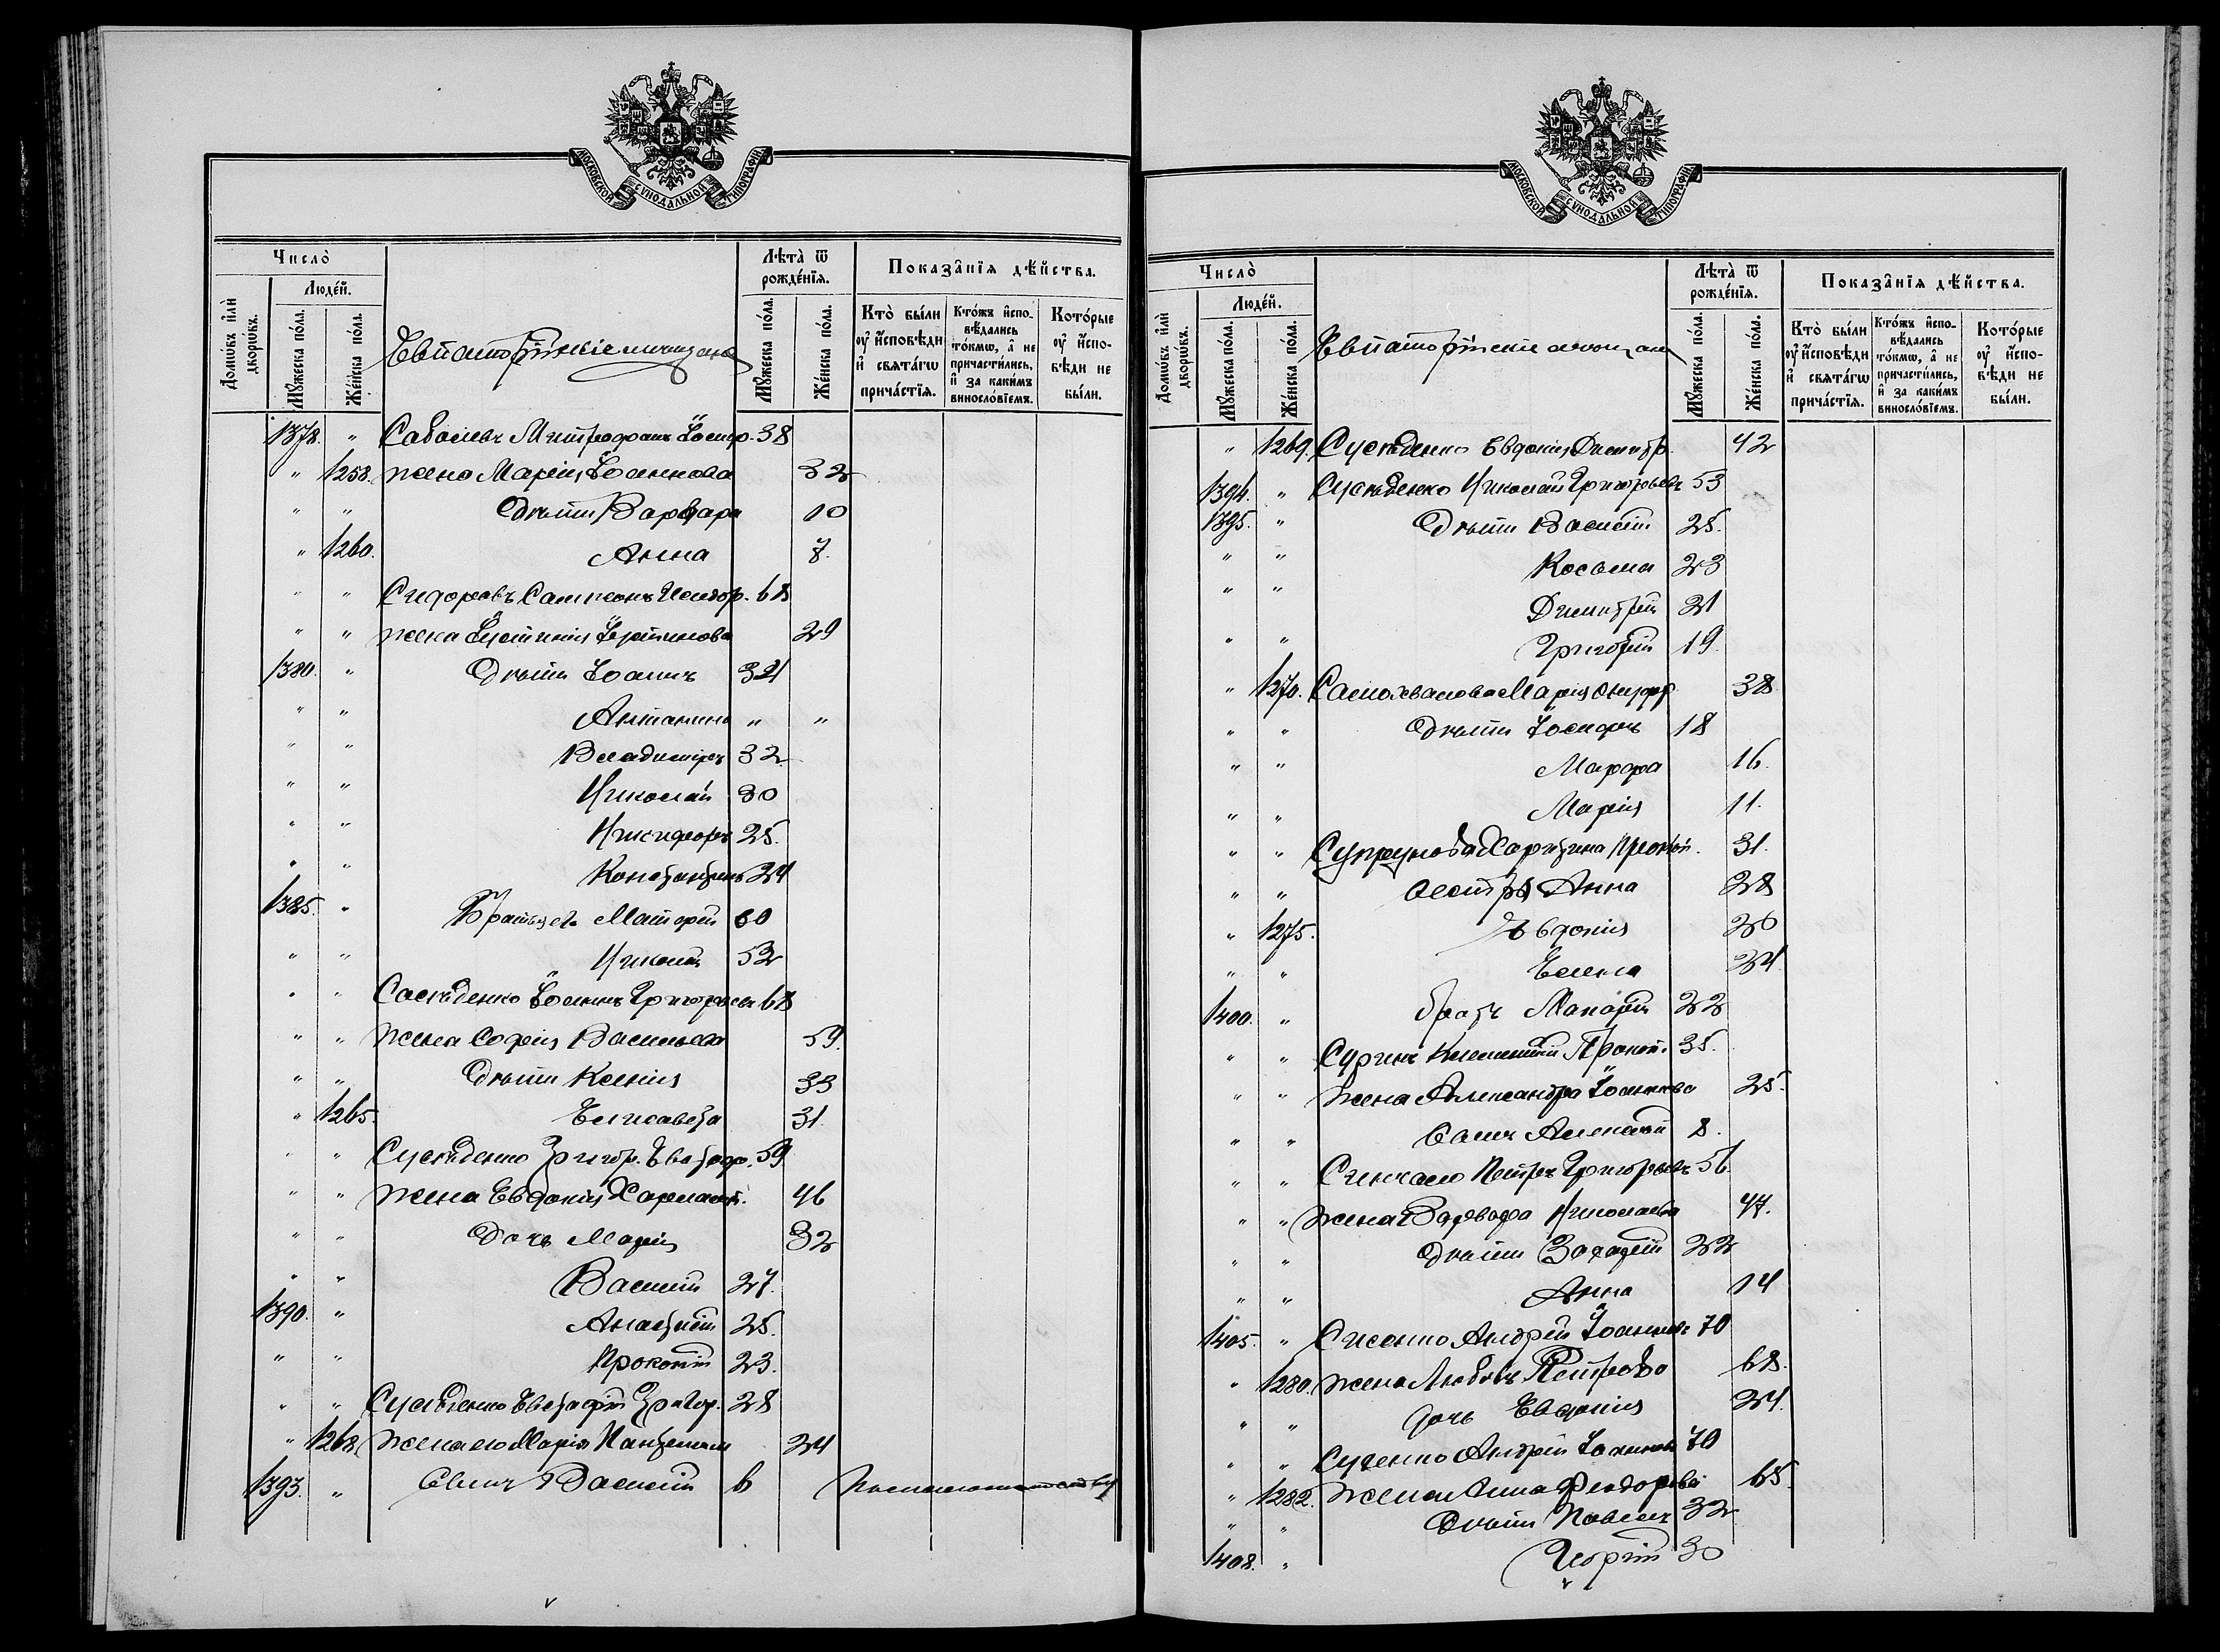 МОСКОВСКОЙ СѴНОДАЛЬНОЙ ТИПОГРАФІИ
Число̀
Людéй.
Домѡ́въ и҆лѝ дворѡ́въ.
Мꙋ́жеска по́ла.
Же́нска по́ла.
Евпаторійскіе мѣщане
Лѣ́та ѿ рожде́нїѧ.
Мꙋ́жеска по́ла.
Же́нска по́ла.
Показа̑нїѧ дѣ́йства.
Кто̀ бы́ли ᲂу҆ и҆́сповѣди и҆ свѧта́гѡ прича́стїѧ.
Кто́жъ и҆спо-вѣ́дались то́кмѡ, а҆ не причасти́лись, и҆ за каки́мъ винослові́емъ.
Кото́рые ᲂу҆ и҆́спо-вѣди не бы́ли.
1378. " Соболевъ Митрофанъ Іосиф. 38
" 1258. жена Марія Іоаннова 32
" " дѣти Варвара 10
" 1260. Анна 7.
" " Сидоровъ Сампсонъ Исидор. 68
" " жена Іустинія Іустинова 29
1380. " дѣти Іоаннъ 34
" " Антонина " "
" " Владиміръ 32
" " Николай 30
" " Никифоръ 25.
" " Константинъ 24
1385. " Братья его Матфей 60
" " Николай 52
" " Сосѣденко Іоаннъ Григорьевъ 68
" " жена Софія Васильева 59.
" " дѣти Ксенія 33
" 1265. Елисавета 31.
" " Сусѣденко Григор. Евстаф. 59
" " жена Евдокія Харламп. 46
" " дочь Марія 32
" " Василій 27.
1390. " Анастасій 25.
" " Прокопій 23.
" " Сусѣденко Евстафій Григор. 28
" 1268. жена его Марія Пантелеим 24
1393. " сынъ Василій 6
МОСКОВСКОЙ СѴНОДАЛЬНОЙ ТИПОГРАФІИ
Число̀
Людéй.
Домѡ́въ и҆лѝ дворѡ́въ.
Мꙋ́жеска по́ла.
Же́нска по́ла.
Евпаторійскіе мѣщане
Лѣ́та ѿ рожде́нїѧ.
Мꙋ́жеска по́ла.
Же́нска по́ла.
Показа̑нїѧ дѣ́йства.
Кто̀ бы́ли ᲂу҆ и҆́сповѣди и҆ свѧта́гѡ прича́стїѧ.
Кто́жъ и҆спо-вѣ́дались то́кмѡ, а҆ не причасти́лись, и҆ за каки́мъ винослові́емъ.
Кото́рые ᲂу҆ и҆́спо-вѣди не бы́ли.
" 1269. Сусѣденко Евдокія Димитр. 42
1394. " Сусѣденко Николай Григорьевъ 53
1395. " дѣти Василій 25.
" " Косьма 23
" " Димитрій 21
" " Григорій 19.
" 1270. Самохвалова Марія Онуфр. 38
" " дѣти Іосифъ 18
" " Марфа 16.
" " Марія 11.
" " Супрунова Харитина Прокоп. 31.
" " сестры Анна 28
" 1275. Евдокія 26
" " Елена 24.
1400. " братъ Макарій 22
" " Суринъ Климентій Прокоп. 35.
" " жена Александра Іоаннова 25.
" " сынъ Алексѣй 8.
" " Синчало Петръ Григорьевъ 56.
" " жена Варвара Николаева 47.
" " дѣти Захарій 22
" " Анна 14
1405. " Сисенко Андрей Іоанновъ 70
" 1280. жена Любовь Петрова 68.
" " дочь Евдокія 24.
" " Сусенко Андрей Іоанновъ 70
" 1282. жена Анна Феодорова 65.
" " дѣти Павелъ 32
1408. " Георгій 30